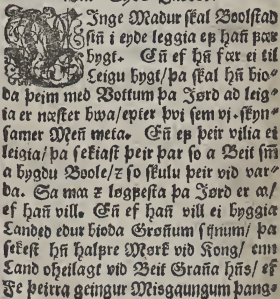 Einge Madur skal Boolstad
sin̄ i eyde leggia ef han̄ fær
bygt. En̄ ef hn̄ fær ei til
Leigu bygt/ þa skal hn̄ bio-
da þeim med Vottum þa Jørd ad leig-
ia er næster bwa/epter þvi sem vj. skyn-
samer Men̄ meta. En̄ ef þeir vilia ei
leigia/ þa sekiast þeir þar so a Beit sm̄
a bygdu Boole/ ꝛ so skulu þeir vid var-
da. Sa ma ꝛ løgfesta þa Jørd er a/
ef han̄ vill. En̄ ef han̄ vill ei byggia
Landed edur bioda Grøn̄um sijnum/ þa
sekest hn̄ halfre Mørk vid Kong/ enn
Land oheilagt vid Beit Gran̄a hn̄s/ ef
Fe þeirra geingur Misgaungum þang-